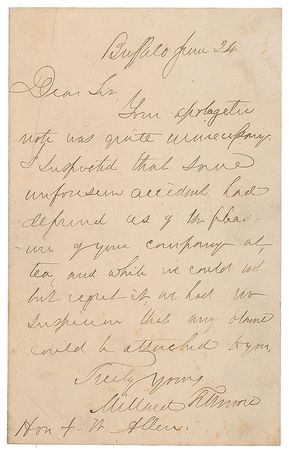 Buffalo June 24
Dear Sir,
Your apologetic
note was quite unnecessary.
I suspected that some
unforseen accident had
deprived us of the pleas-
ure of your company at
tea, and while we could not
but regret it, we had no
suspicion that any blame
could be attached to you.
Truly Yours
Millard Fillmore
Hon Allen.